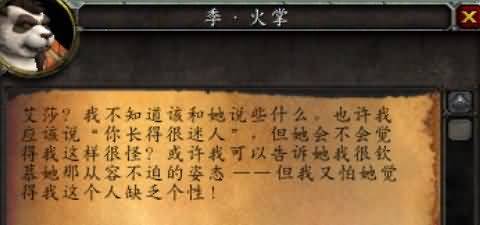 季·火掌
艾莎？我不知道该和她说些什么。也许我
应该说“你长得很迷人”，但她会不会觉
得我这样很怪？或许我可以告诉她我很钦
慕她那从容不迫的姿态——但我又怕她觉
得我这个人缺乏个性！